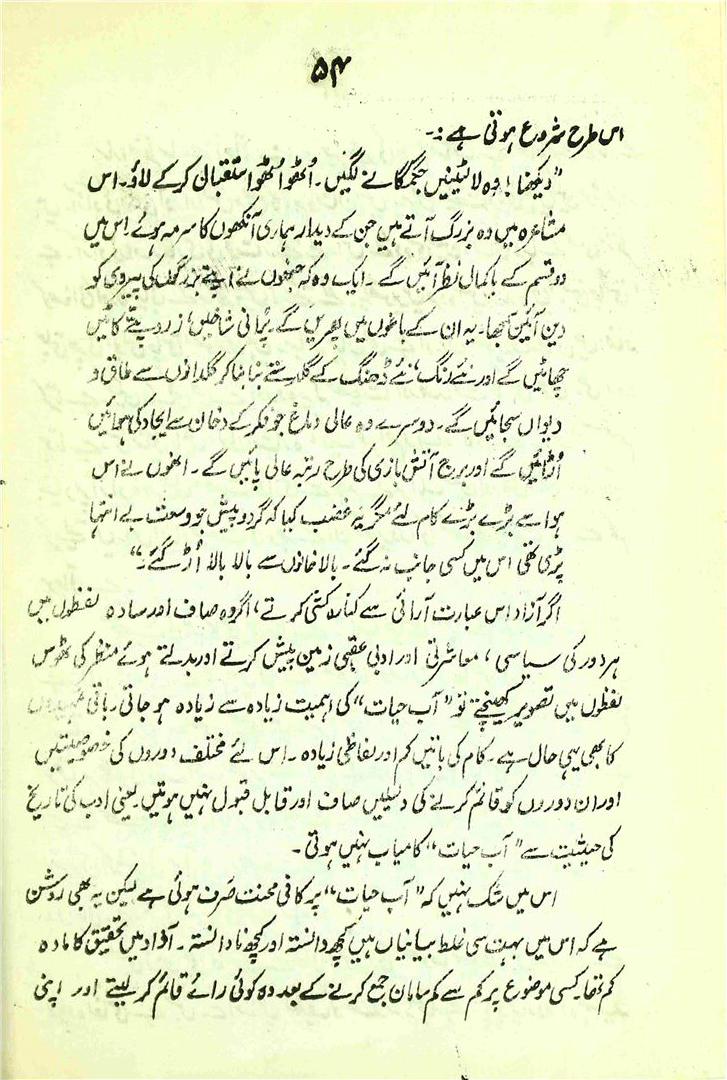 ۵۴
اس طرح شروع ہوتی ہے :-
"دیکھنا! وہ لالٹینیں جگمگانے لگیں۔ اُٹھو اُٹھو استقبال کر کے لاؤ۔ اس
مشاعرہ میں وہ بزرگ آتے ہیں جن کے دیدار ہماری آنکھوں کا سرمہ ہوئے۔ اس میں
دو قسم کے باکمال نظر آئیں گے۔ ایک وہ کہ جنھوں نے اپنے بزرگوں کی پیروی کو
دین آئین سمجھا۔ یہ ان کے باغوں میں پھریں گے۔ پرانی شاخیں، زرد پتے کاٹیں
چھانٹیں گے اور نئے رنگ، نئے ڈھنگ کے گلدستے بنا بنا کر گلدانوں سے طاق و
دیواں سجائیں گے۔ دوسرے وہ عالی دماغ جو فکر کے دخان سے ایجاد کی ہوائیں
اُڑائیں گے اور برج آتش بازی کی طرح رتبہ عالی پائیں گے۔ انھوں نے اس
ہوا سے بڑے بڑے کام لئے مگر یہ غضب کیا کہ گرد و پیش جو وسعت بے انتہا
پڑی تھی اس میں کسی جانب نہ گئے۔ بالا خانوں سے بالا بالا اُڑ گئے۔"
اگر آزاد اس عبارت آرائی سے کنارہ کشی کرتے، اگر وہ صاف اور سادہ لفظوں میں
ہر دور کی سیاسی، معاشرتی اور ادبی عقبی زمین پیش کرتے اور بدلتے ہوئے منظر کی ٹھوس
لفظوں میں تصویر کھینچتے تو "آب حیات" کی اہمیت زیادہ سے زیادہ ہو جاتی۔ باقی تمہیدوں
کا بھی یہی حال ہے۔ کام کی باتیں کم اور لفاظی زیادہ۔ اس لئے مختلف دوروں کی خصوصیتیں
اور ان دوروں کو قائم کرنے کی دلیلیں صاف اور قابل قبول نہیں ہوتیں۔ یعنی ادب کی تاریخ
کی حیثیت سے "آب حیات" کامیاب نہیں ہوتی۔
اس میں شک نہیں کہ "آب حیات" پر کافی محنت صَرف ہوئی ہے لیکن یہ بھی روشن
ہے کہ اس میں بہت سی غلط بیانیاں ہیں کچھ دانستہ اور کچھ نادانستہ۔ آزاد میں تحقیق کا مادہ
کم تھا۔ کسی موضوع پر کم سے کم سامان جمع کرنے کے بعد وہ کوئی رائے قائم کر لیتے اور اپنی